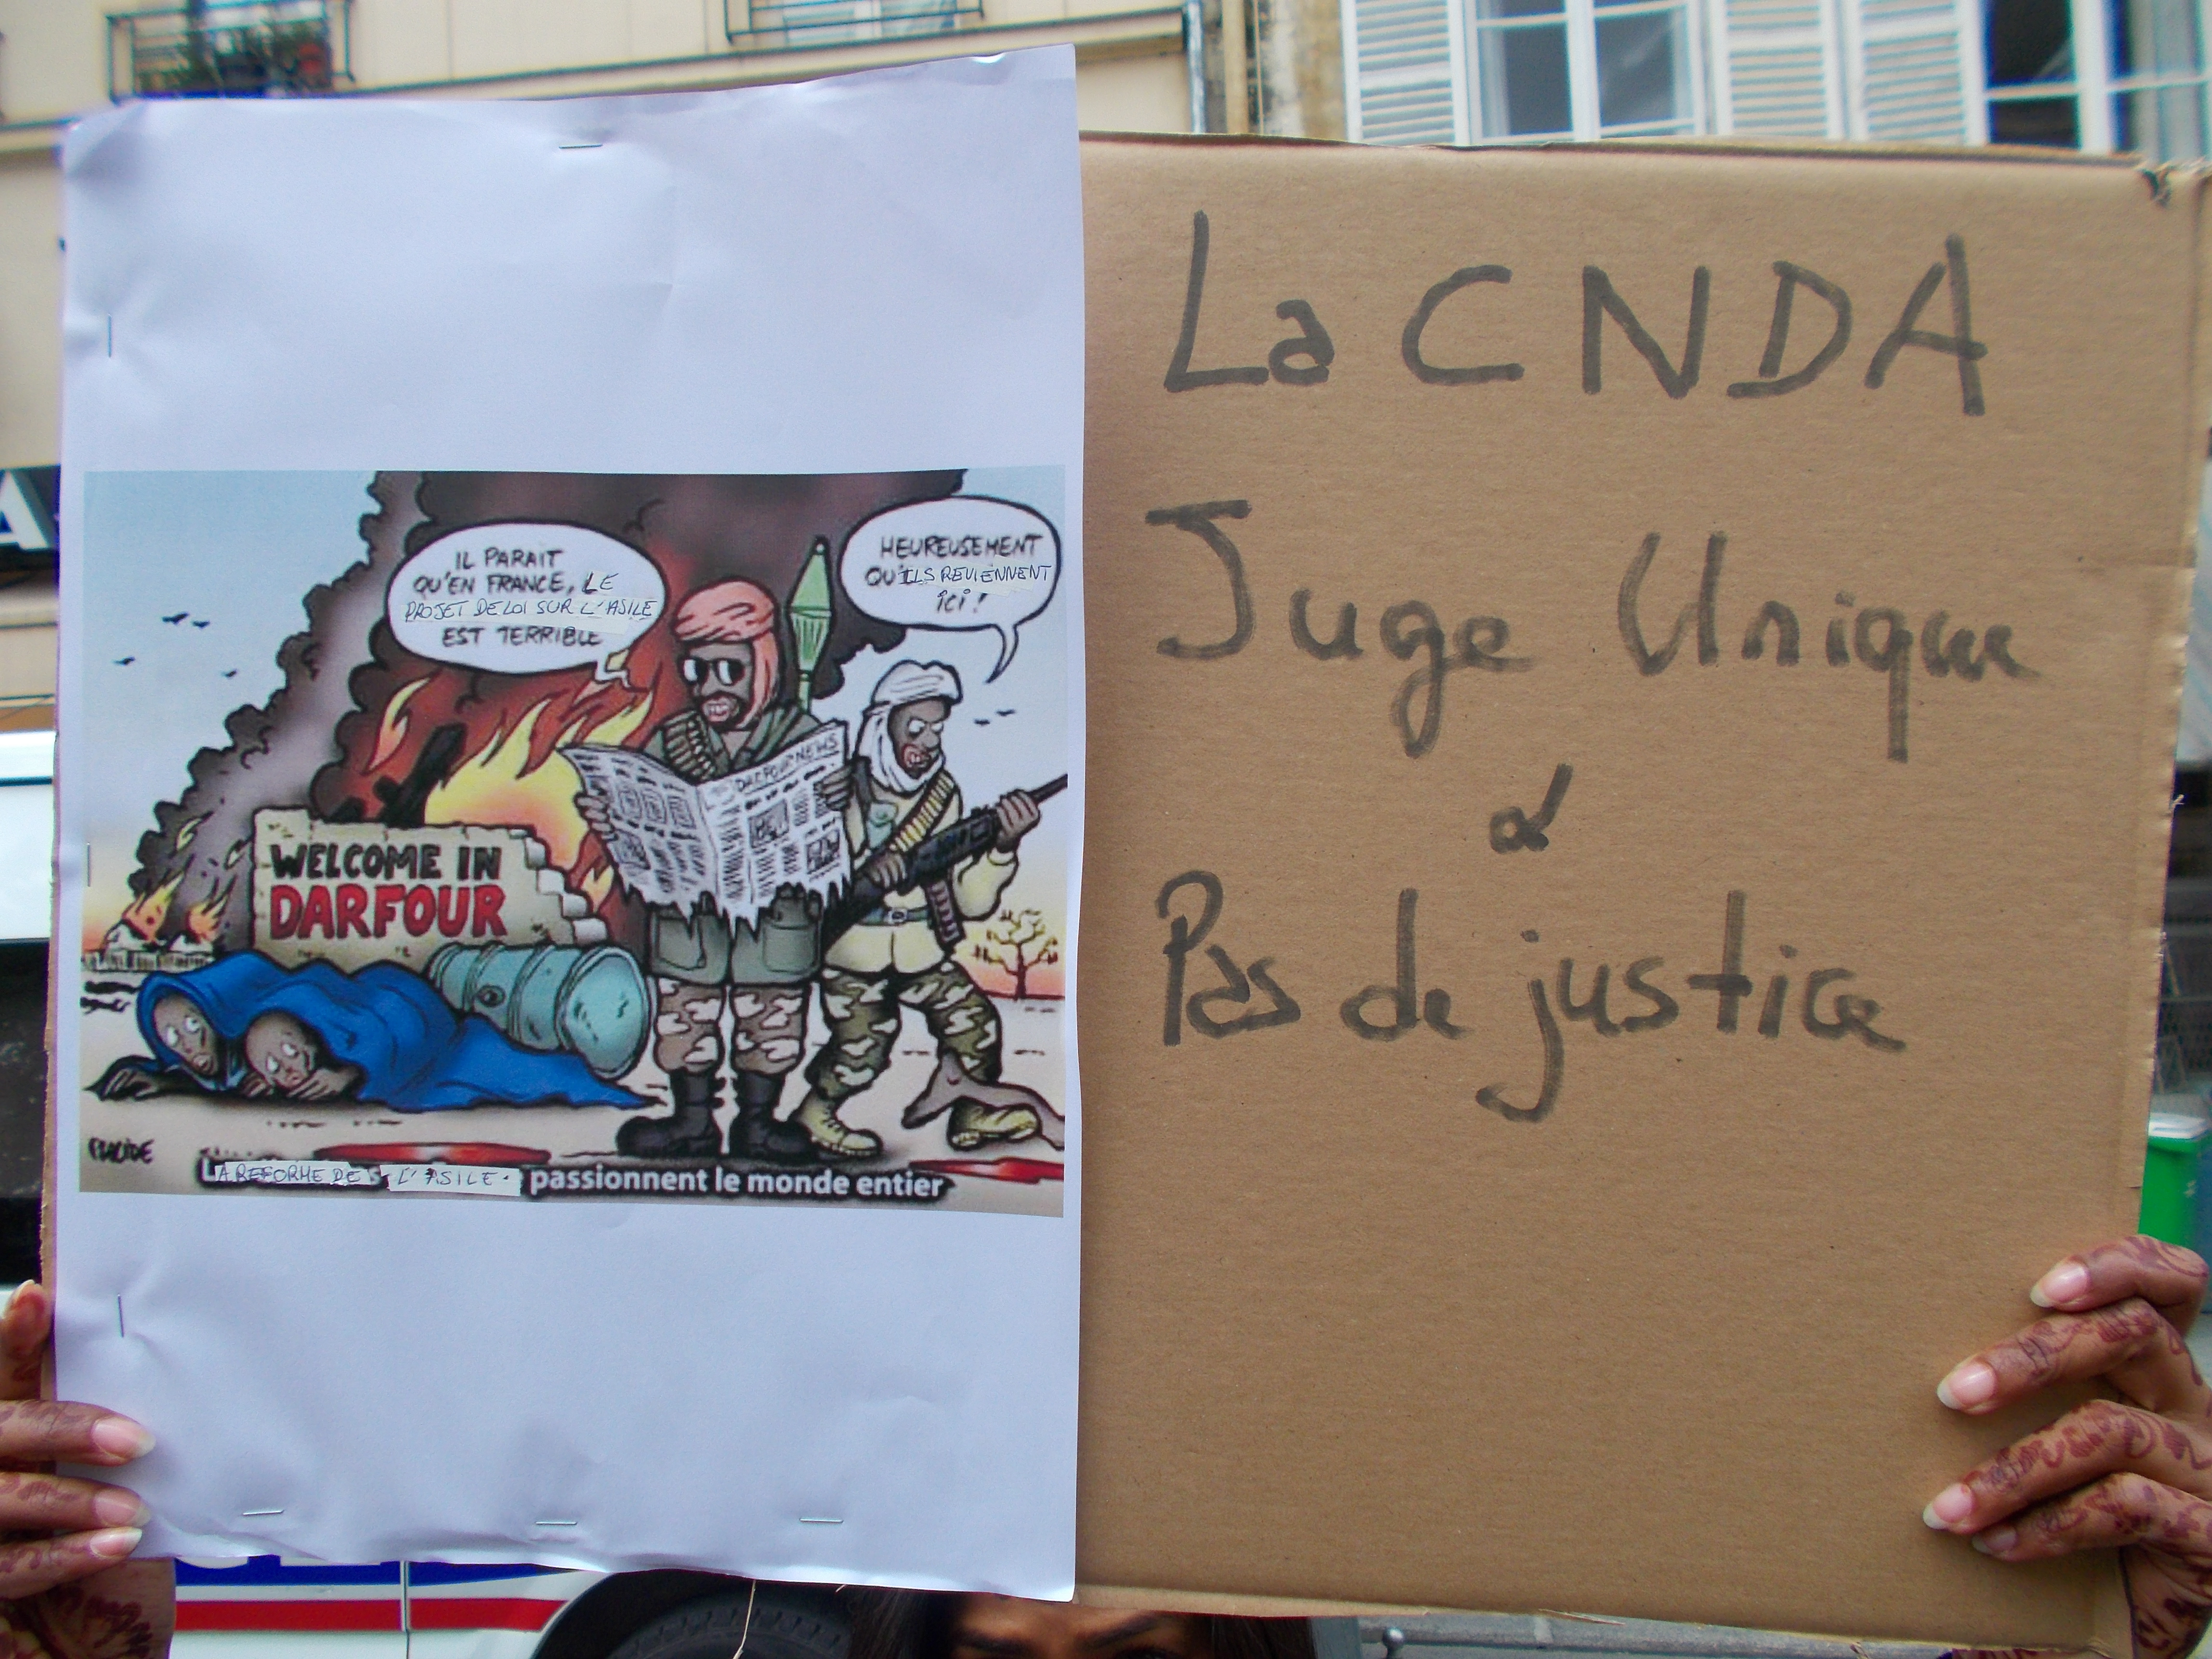 IL PARAIT
QU'EN FRANCE, LE
PROJET DE LOI SUR L'ASILE
EST TERRIBLE
HEUREUSEMENT
QU'ILS REVIENNENT
ICI !
DARFOUR NEWS
WELCOME IN
DARFOUR
PLACIDE
LA REFORME DE L'ASILE. passionnent le monde entier
La CNDA
Juge Unique
&
Pas de justice